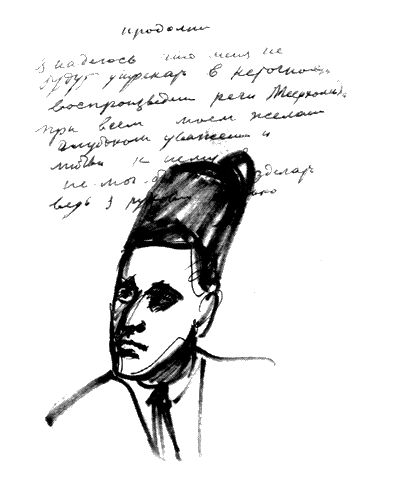 я надеюсь что меня не
будут упрекать в неточности
воспроизведения речи Мейерхольда
при всем моем желании
глубоком уважении и
любви к нему
не мог сделать
ведь я